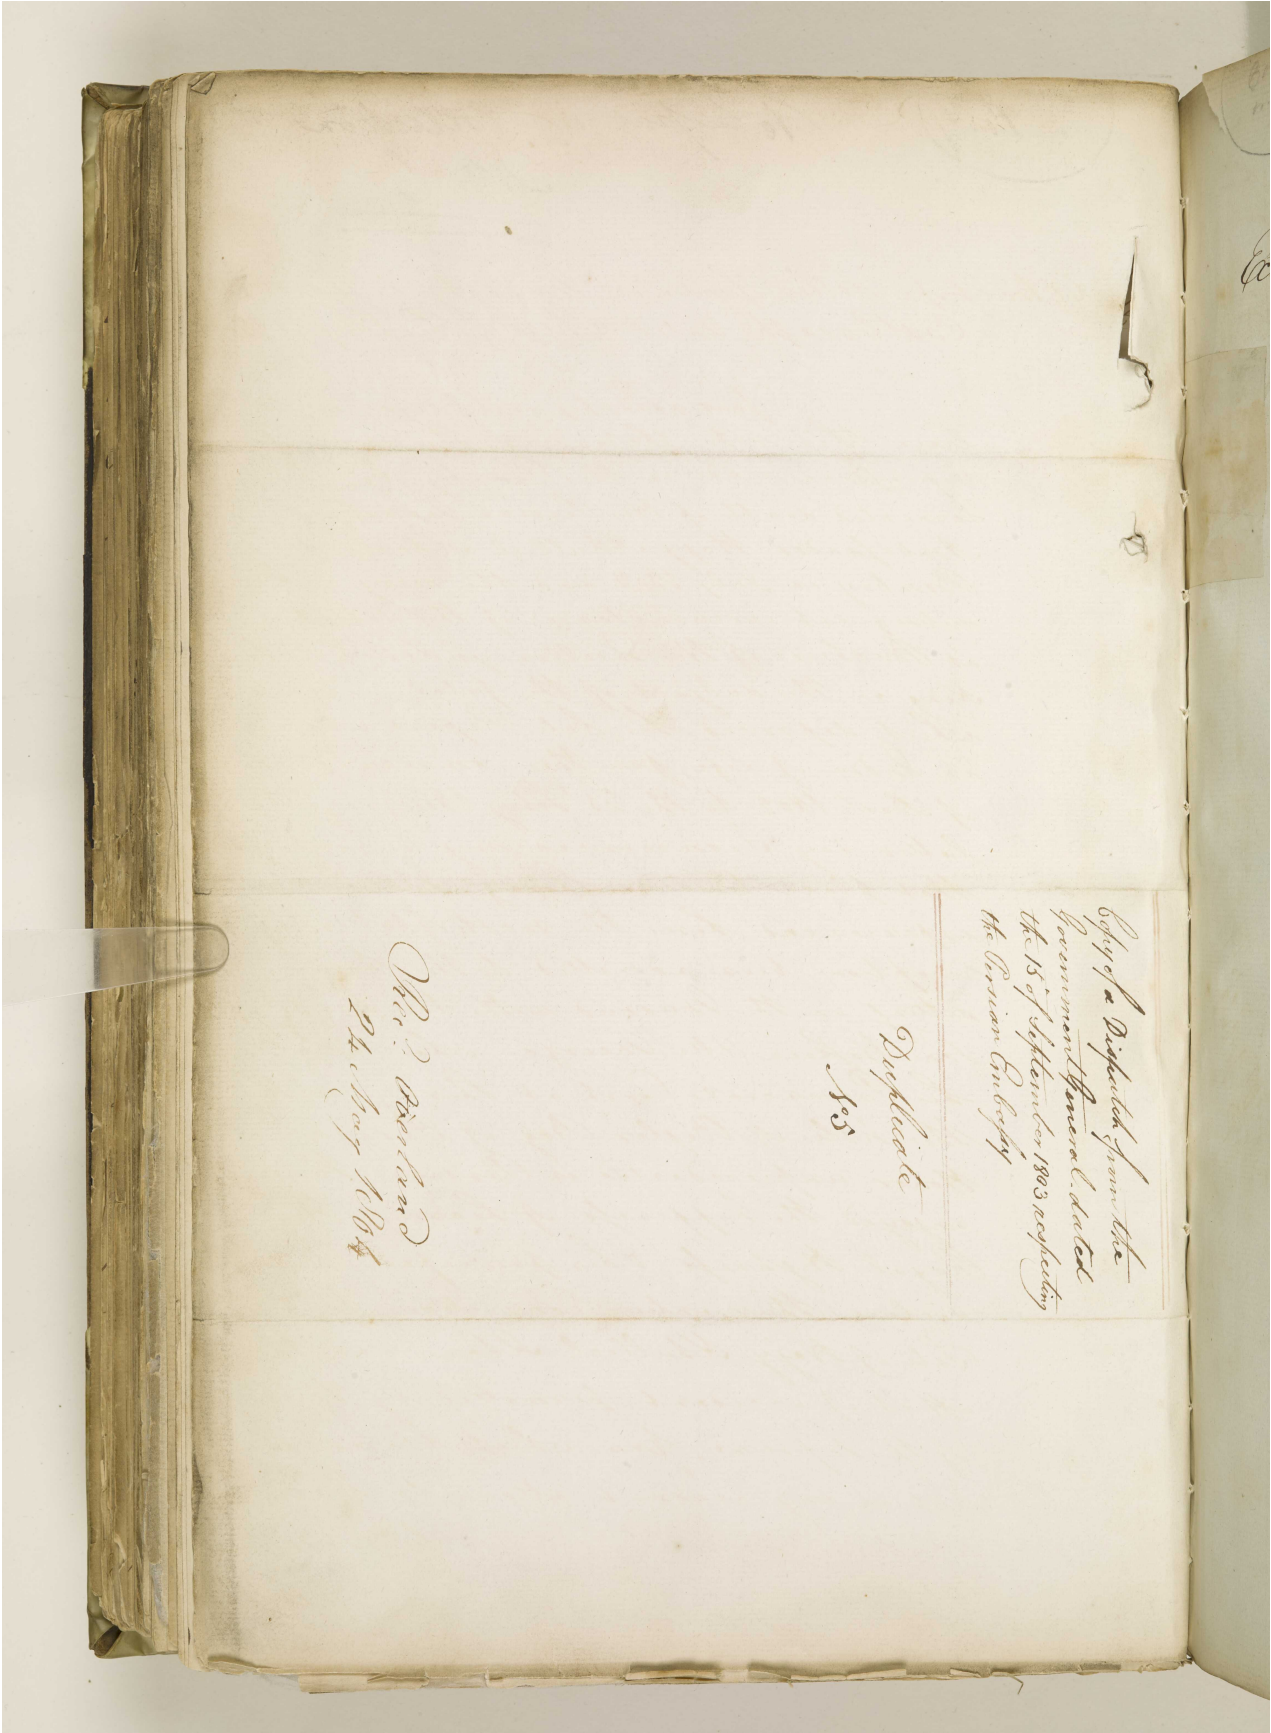 Copy of a Dispatch from the
Government General dated
the 15 of September 1803 respecting
the Persian Embassy
Duplicate
No 5
Recd. Overland
24 May 1804
Ex